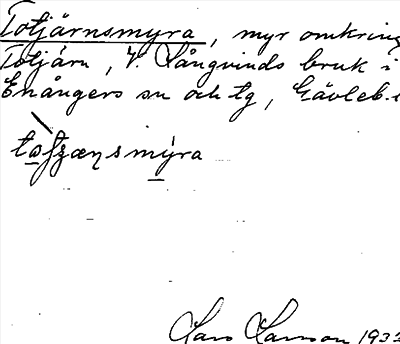 Totjärnsmyra, myr omkring
Totjärn, V. Långvinds bruk i
Enångers sn och tg, Gävleb.
Lars Larsson 1933